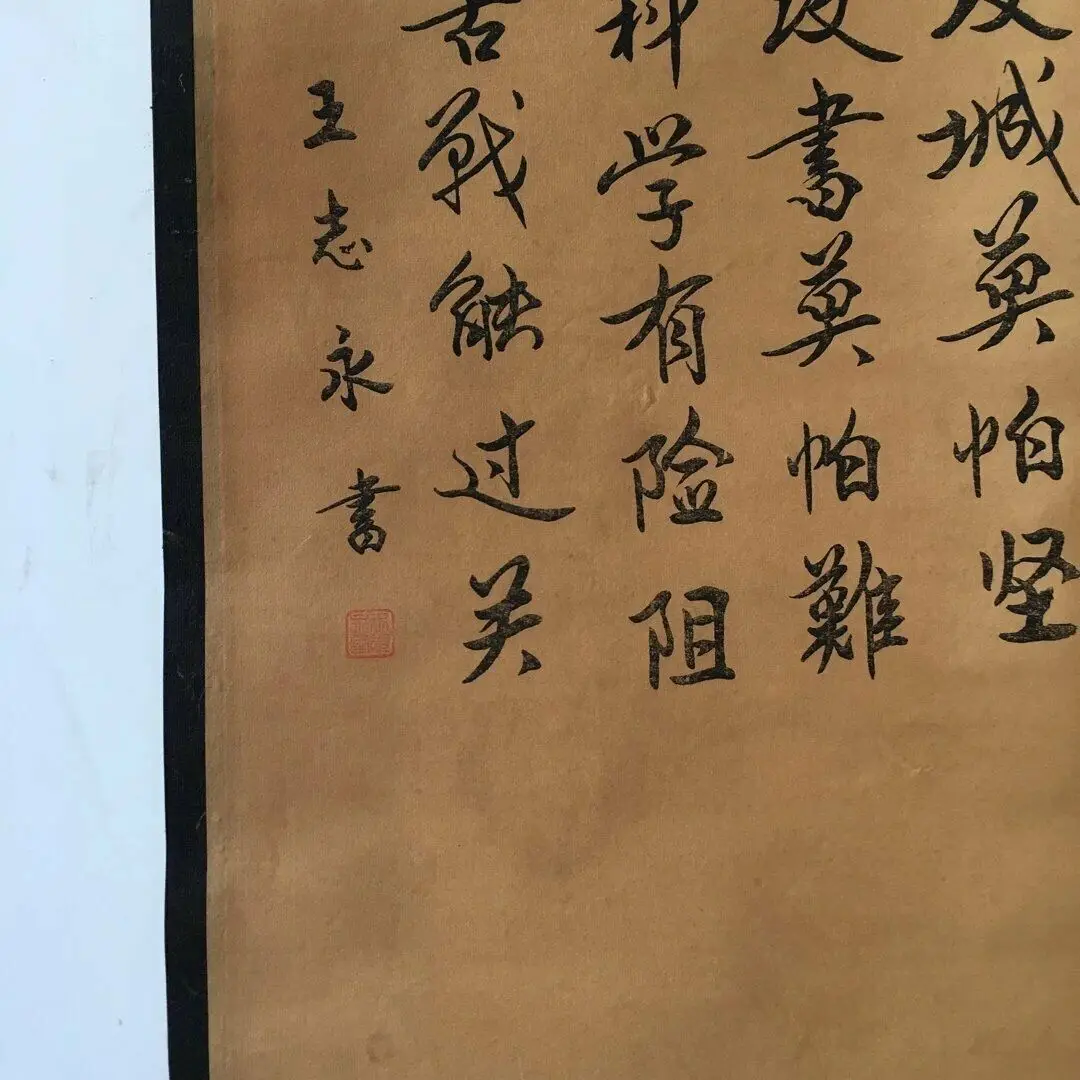 攻城莫怕坚
攻書莫怕難
科学有险阻
苦戰能过关
王志永書